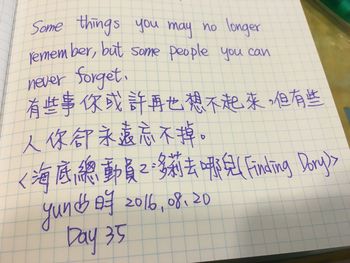 Some things you may no longer
remember, but some people you can
never forget.
有些事你或許再也想不起來，但有些
人你卻永遠忘不掉。
<海底總動員2:多莉去哪兒(Finding Dory)>
2016.08.20
Day 35